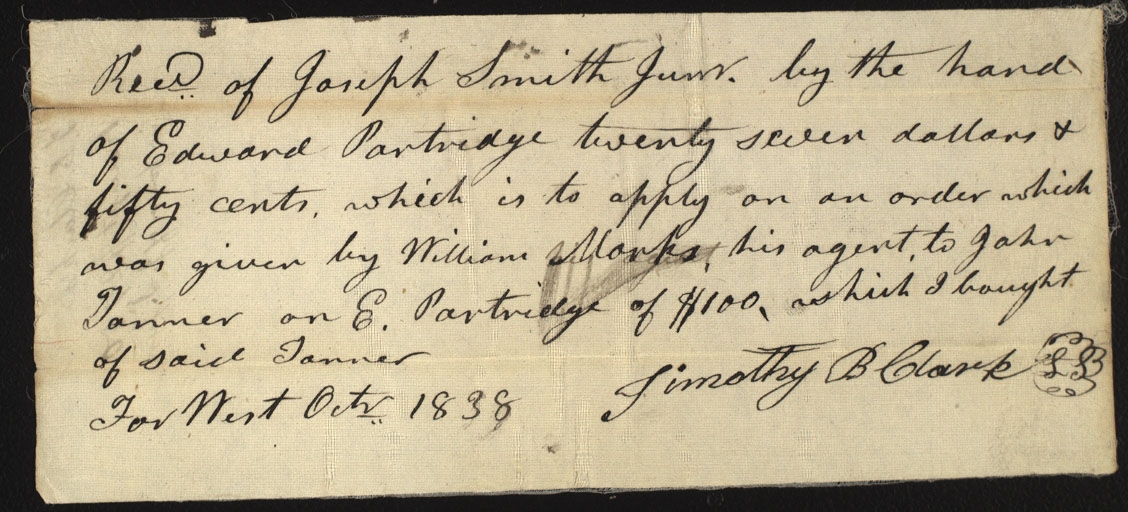 Recd. of Joseph Smith Junr. by the hand
of Edward Partridge twenty seven dollars &
fifty cents, which is to apply on an order which
was given by William Marks, his agent, to John
Tanner on E. Partridge of $100, which I bought
of said Tanner
Far West Octr. 1838
Timothy B Clark